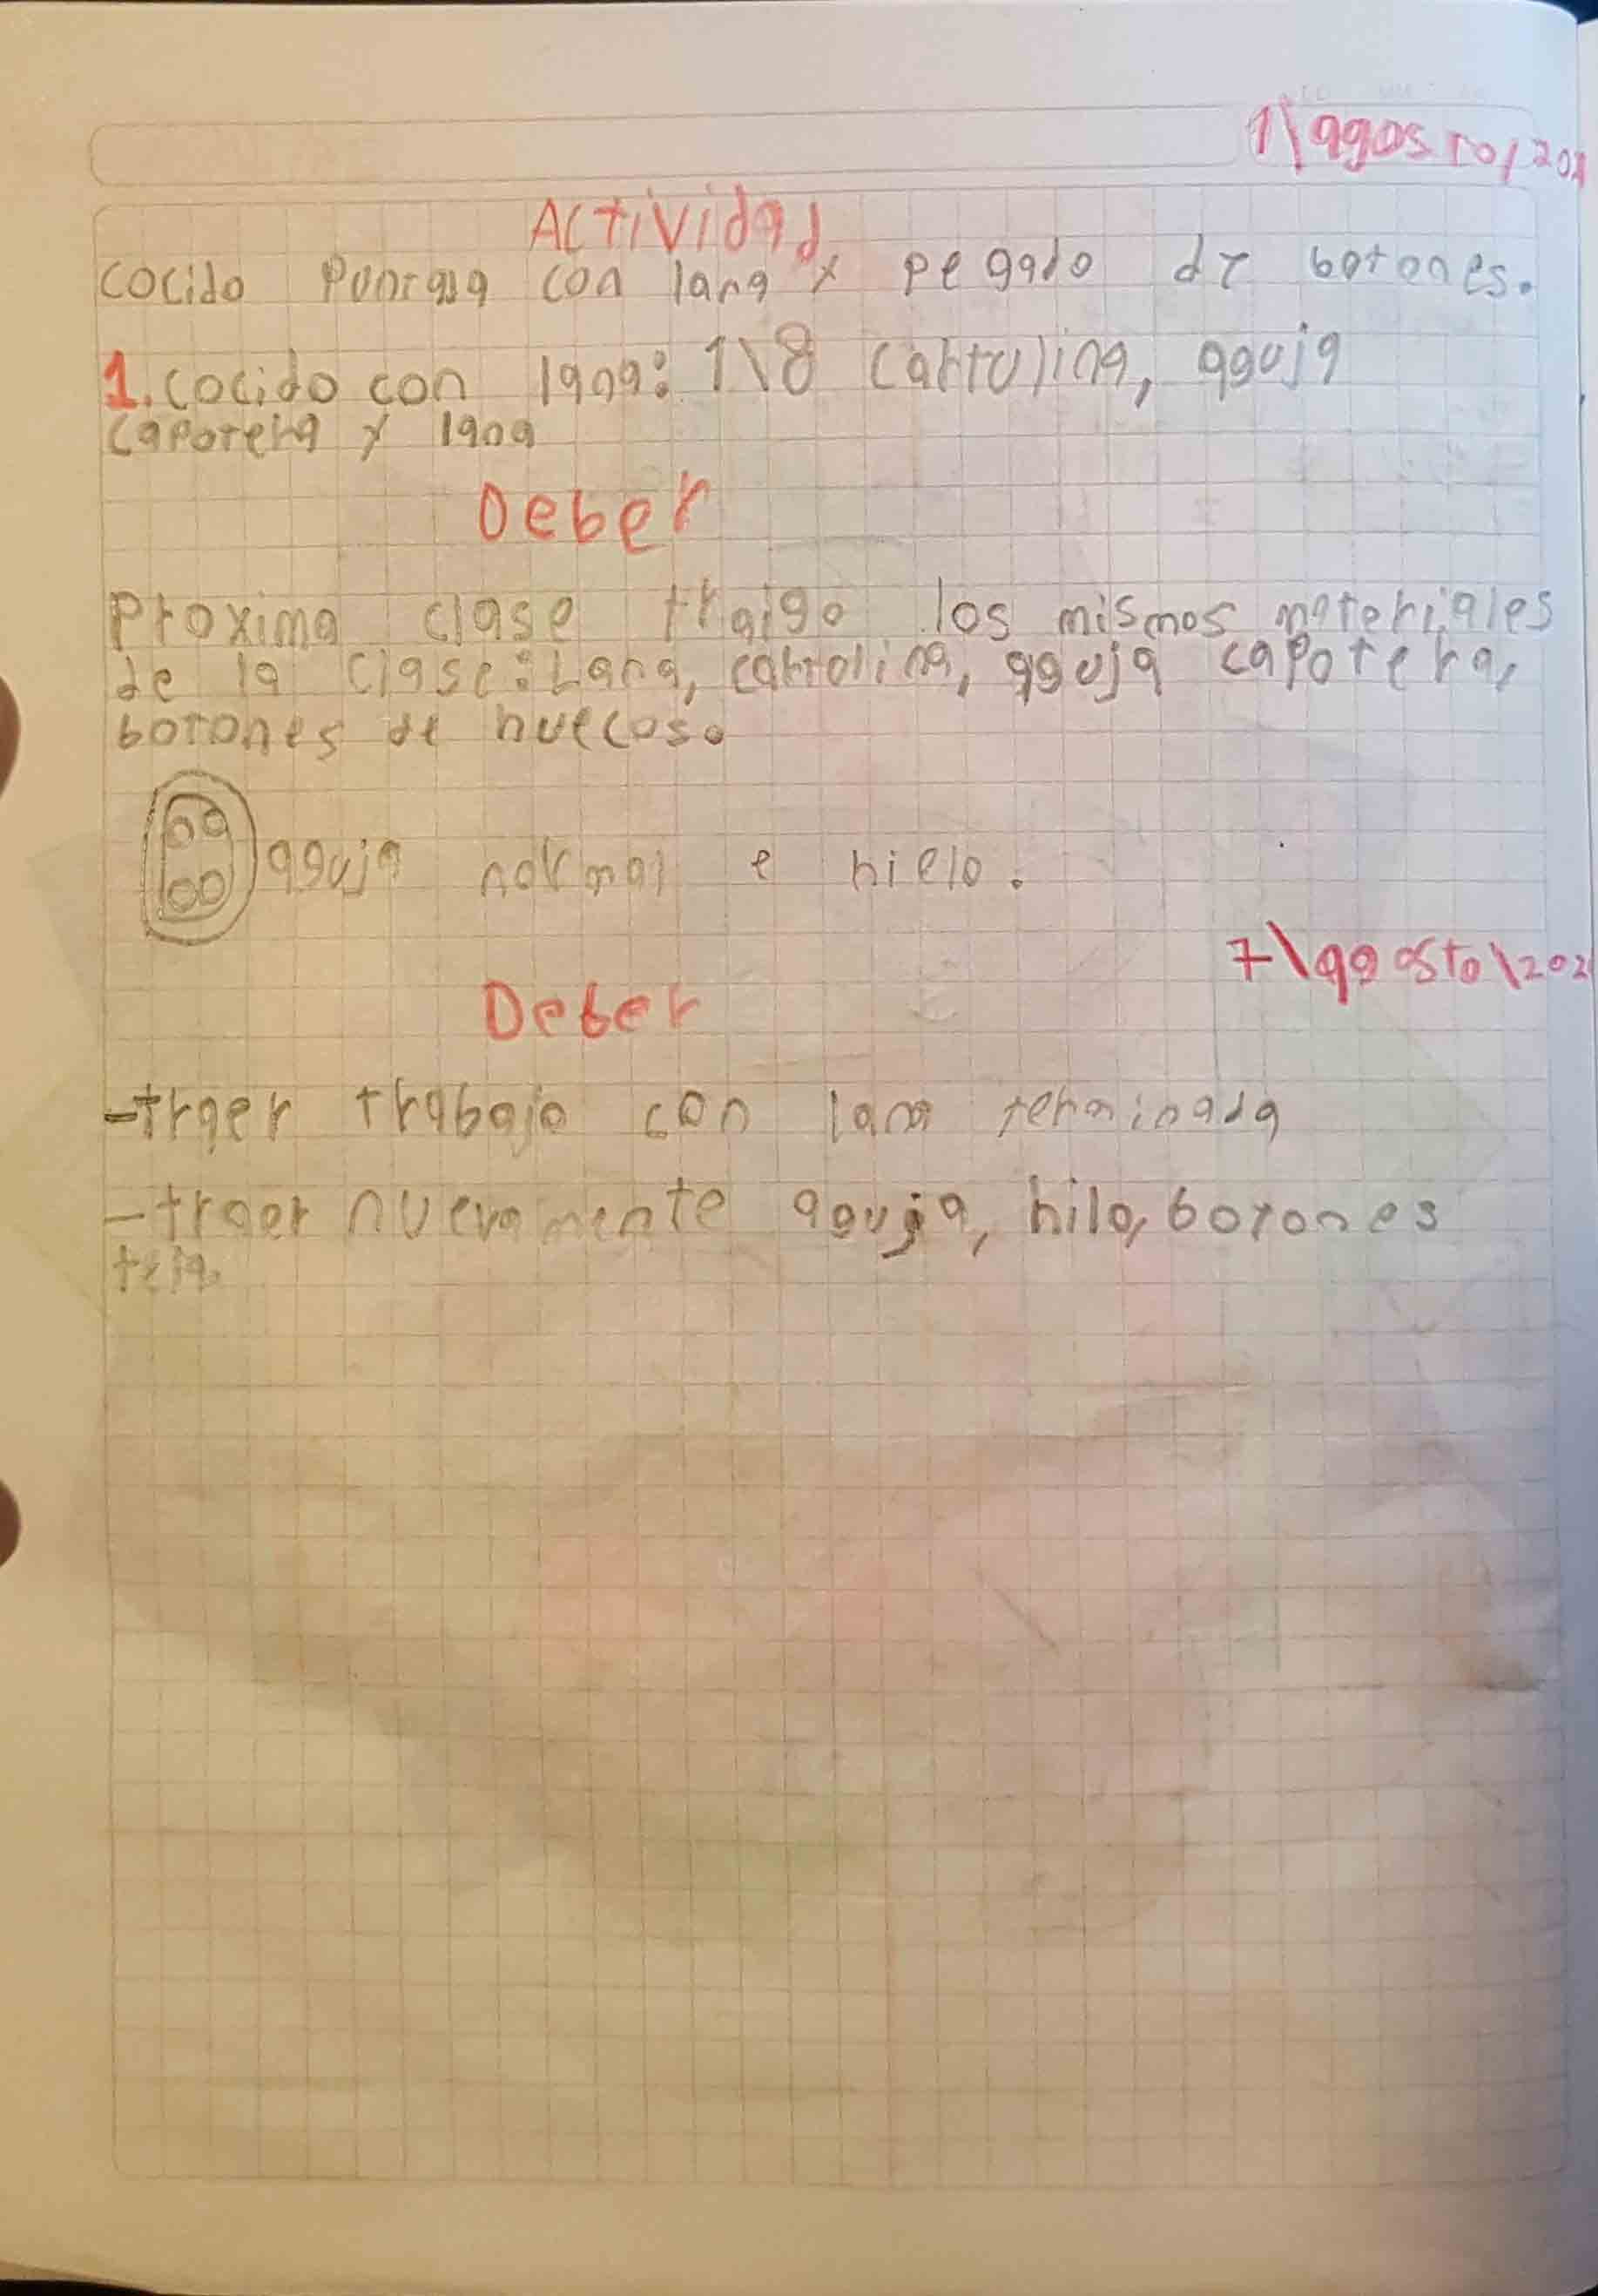 1\agosto/202
Actividad
cocido Puntada con lana y pegado de botones.
1. cocido con lana: 1\8 cartulina, aguja
capotera y lana
Deber
Proxima clase traigo los mismos materiales
de la clase: Lana, cartolina, aguja capotera,
botones de huecos.
aguja normal e hielo.
7\agosto\202
Deber
-traer trabajo con lana terminada
-traer nuevamente aguja, hilo, botones
tela